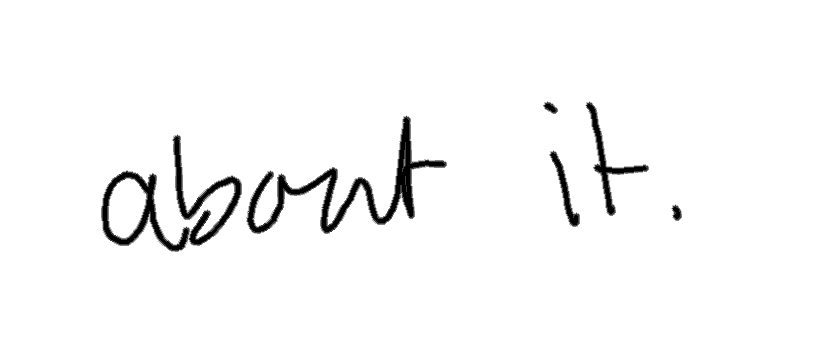 about it.